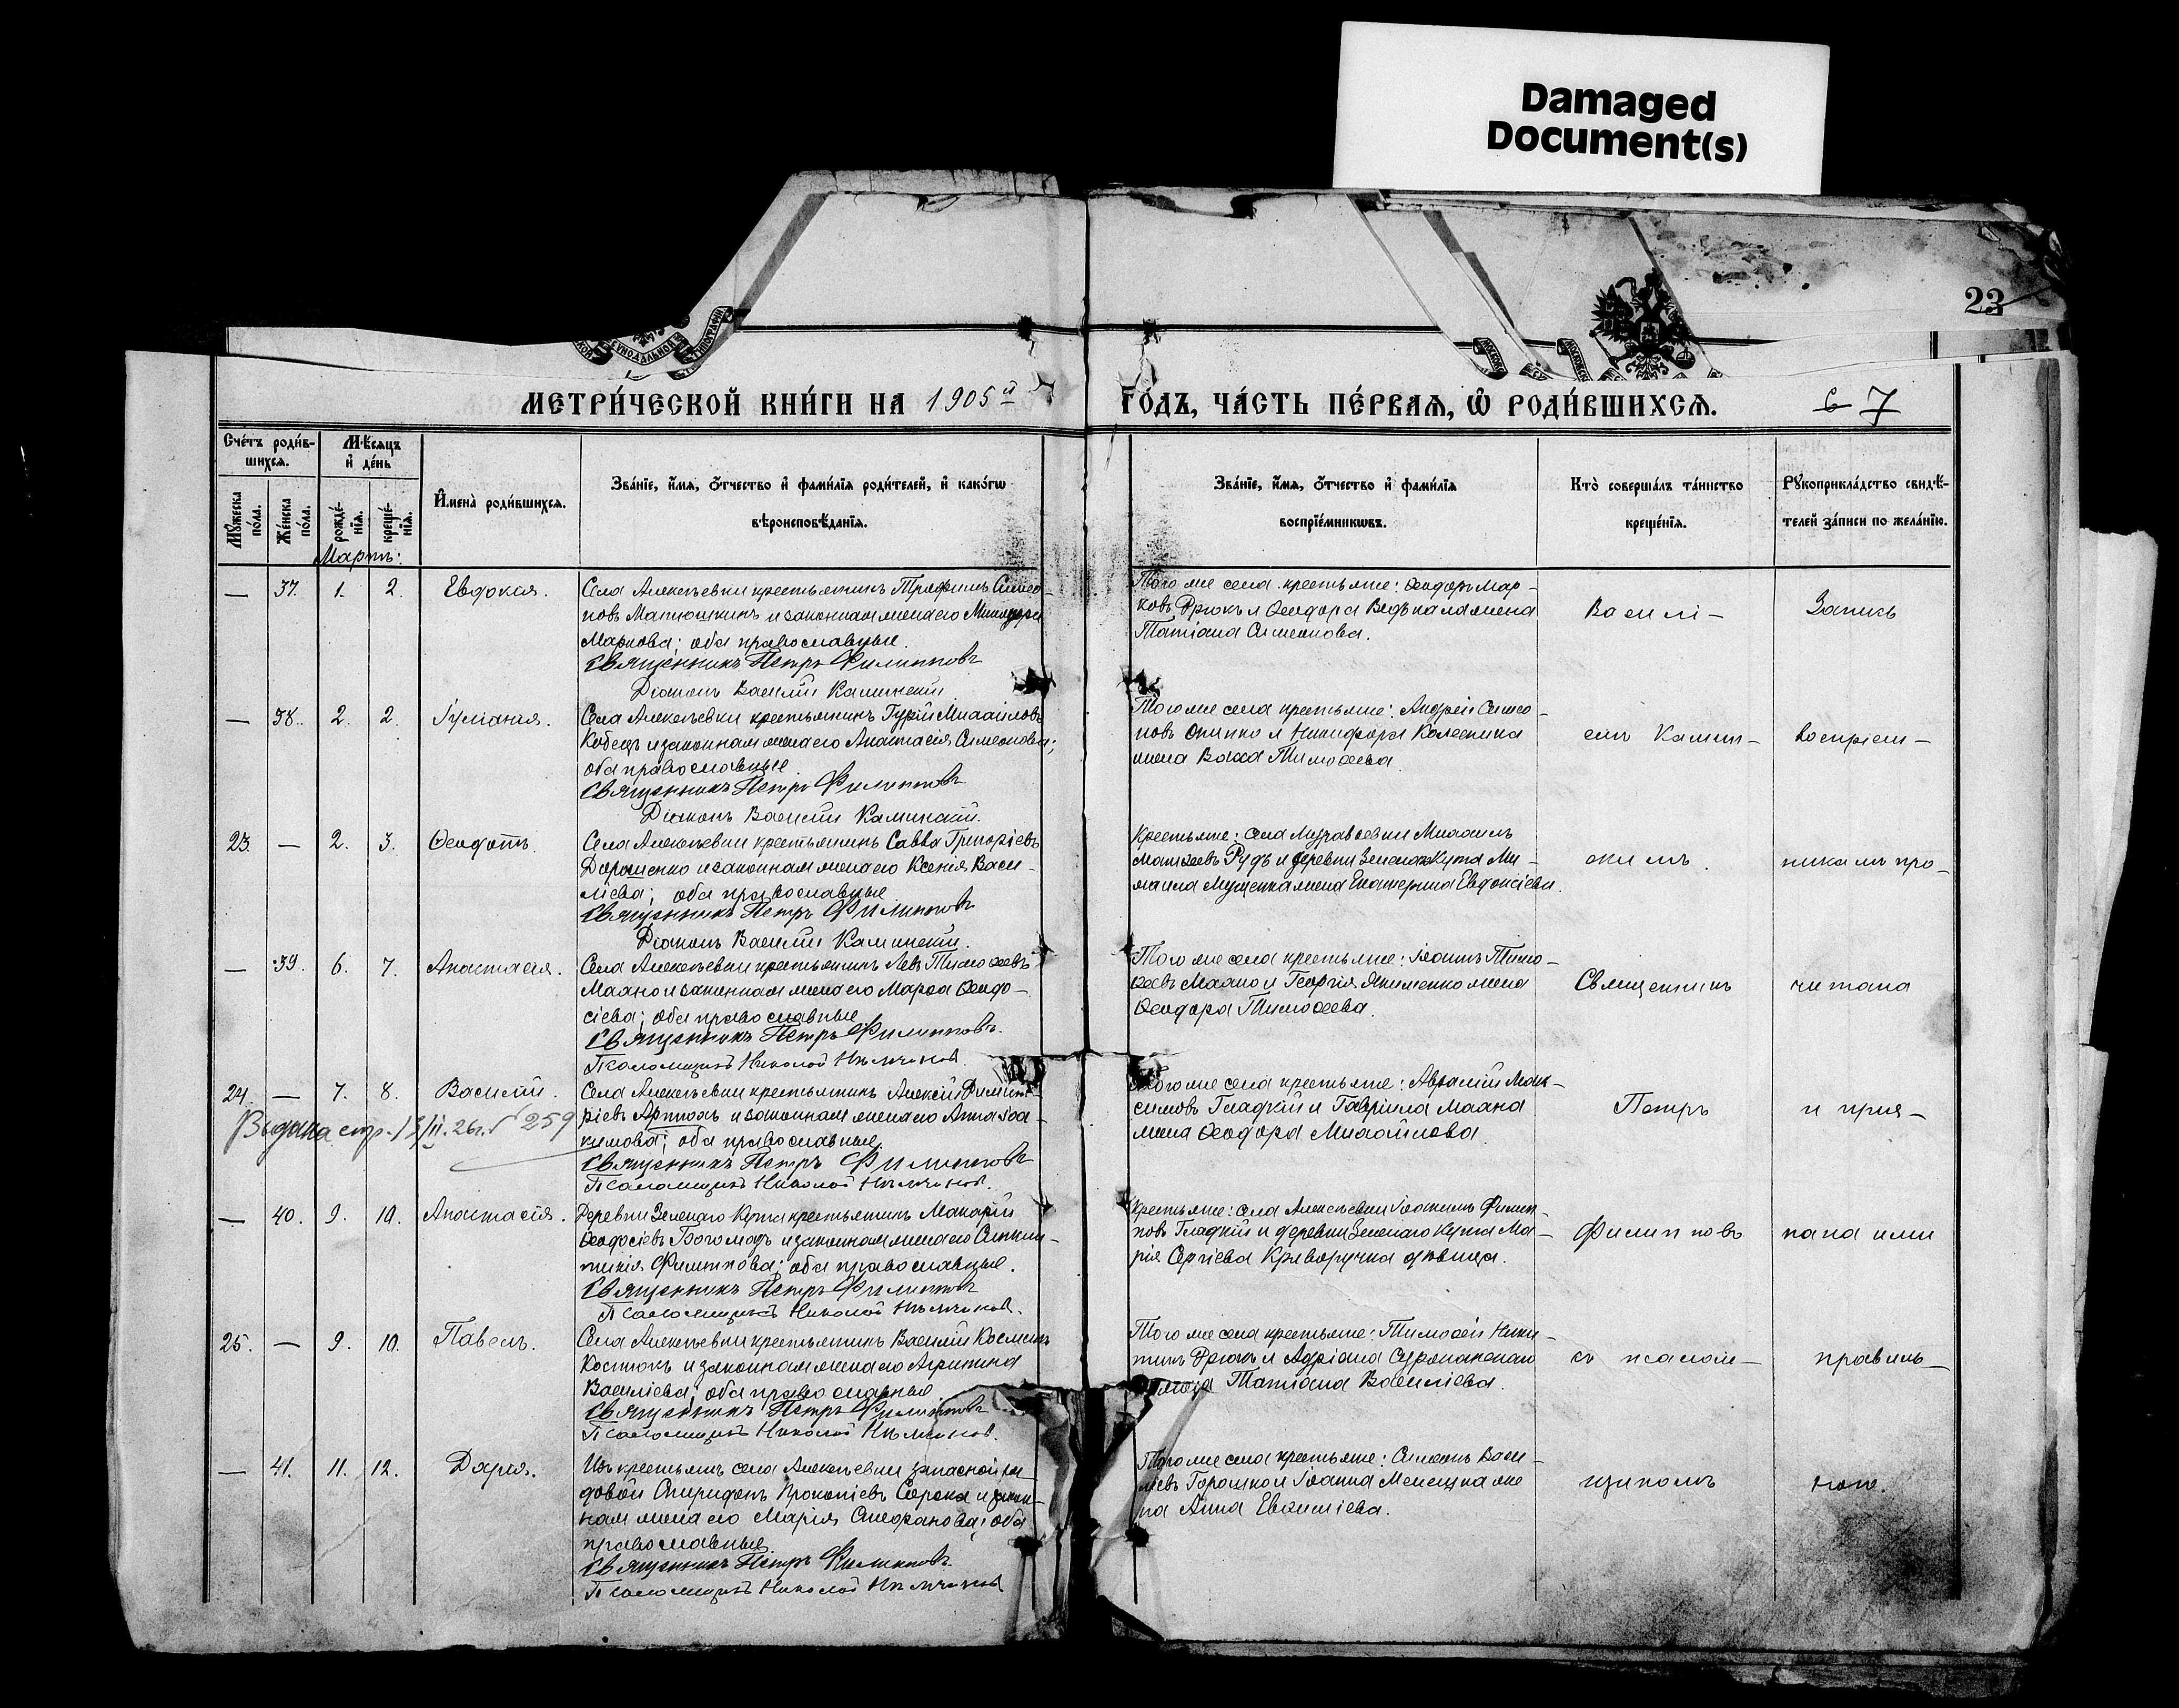 Damaged
Document(s)
23
МЕТРИ́ЧЕСКОЙ КНИ́ГИ НА 1905й ГО́ДЪ, ЧА́СТЬ ПЕ́РВАЯ, Ѡ҆ РОДИ́ВШИХСЯ.
7
Сче́тъ роди́в-
шихся.
Мѣ́сяцъ
и҆ де́нь
Мꙋ́жеска
по́ла.
Же́нска
по́ла.
рожде́-
нїя.
креще́-
нїя.
И҆мена̀ роди́вшихся.
Зва́нїе, и҆́мя, ѻ҆́тчество и҆ фами́лїя роди́телей, и҆ како́гѡ
вѣроисповѣ́данїя.
Зва́нїе, и҆́мя, ѻ҆́тчество и҆ фами́лїя
воспрїе́мникѡвъ.
Кто̀ соверша́лъ та́инство
креще́нїя.
Рꙋкоприкла́дство свидѣ́-
телей за́писи по жела́нїю.
Мартъ:
— 37. 1. 2. Евдокія.
Села Алексѣевки крестьянинъ Трифонъ Симео-
новъ Матюшкинъ и законная жена его
Маркова; оба православные.
Священникъ Петръ Филипповъ
Діаконъ Василій Каминскій
Того же села крестьяне: Ѳеодоръ Мар-
ковъ Дрюкъ и Ѳеодора жена
Татіана Симеонова.
Василі-
Запись
— 38. 2. 2. Іуліанія.
Села Алексѣевки крестьянинъ Гурій Михайловъ
Кобецъ и законная жена его Анастасія Симеонова;
оба православные.
Священникъ Петръ Филипповъ
Діаконъ Василій Каминскій.
Того же села крестьяне: Андрей Симео-
новъ Онипко и Никифора Колесника
жена Васса Тимоѳеева.
емъ Камин-
воспріем-
23. — 2. 3. Ѳеодотъ.
Села Алексѣевки крестьянинъ Савва Григоріевъ
Дорошенко и законная жена его Ксенія Васи-
ліева; оба православные
Священникъ Петръ Филипповъ
Діаконъ Василій Каминскій.
Крестьяне: села Михаилъ
Матѳеевъ Рудь и деревни Зеленаго Кута Ми-
хаила жена Екатерина Евдокіева.
скимъ.
никамъ про-
— 39. 6. 7. Анастасія.
Села Алексѣевки крестьянинъ Левъ Тимоѳеевъ
Махно и законная жена его Марѳа Ѳеодо-
сіева; оба православные
Священникъ Петръ Филипповъ.
Псаломщикъ Николай
Того же села крестьяне: Іоаннъ Тимо-
ѳеевъ Махно и Георгія Якименко жена
Ѳеодора Тимоѳеева.
Священникъ
читана
24. — 7. 8. Василій.
Села Алексѣевки крестьянинъ Алексѣй Димит-
ріевъ Артюхъ и законная жена его Анна Іоа-
кимова; оба православные.
Священникъ Петръ Филипповъ
Псаломщикъ Николай
Выдана 259
Того же села крестьяне: Авраамій Мак-
симовъ Гладкій и Гавріила Махна
жена Ѳеодора Михайлова.
Петръ
и приз-
— 40. 9. 10. Анастасія.
Деревни Зеленаго Кута крестьянинъ Макарій
Ѳеодосіевъ Богомазъ и законная жена его Синкли-
тикія Филиппова; оба православные.
Священникъ Петръ Филипповъ
Псаломщикъ Николай
Крестьяне: села Алексѣевки Іоакимъ Филип-
повъ Гладкій и деревни Зеленаго Кута Ма-
рія Сергіева Криворучка дѣвица.
Филипповъ
нана ими
25. — 9. 10. Павелъ.
Села Алексѣевки крестьянинъ Василій Косминъ
Костюкъ и законная жена его Агриппина
Василіева; оба православные.
Священникъ Петръ Филипповъ
Псаломщикъ Николай
Того же села крестьяне: Тимоѳей Ники-
тинъ Дрюкъ и Адріана
жена Татіана Василіева.
съ псалом-
правиль-
— 41. 11. 12. Дарія.
Изъ крестьянъ села Алексѣевки запасной ря-
довой Спиридонъ Прокопіевъ Сорока и закон-
ная жена его Марія Стефанова; оба
православные.
Священникъ Петръ Филипповъ
Псаломщикъ Николай
Того же села крестьяне: Симеонъ Васи-
ліевъ Горошко и Іоанна же-
на Анна Евѳиміева.
щикомъ
ною.